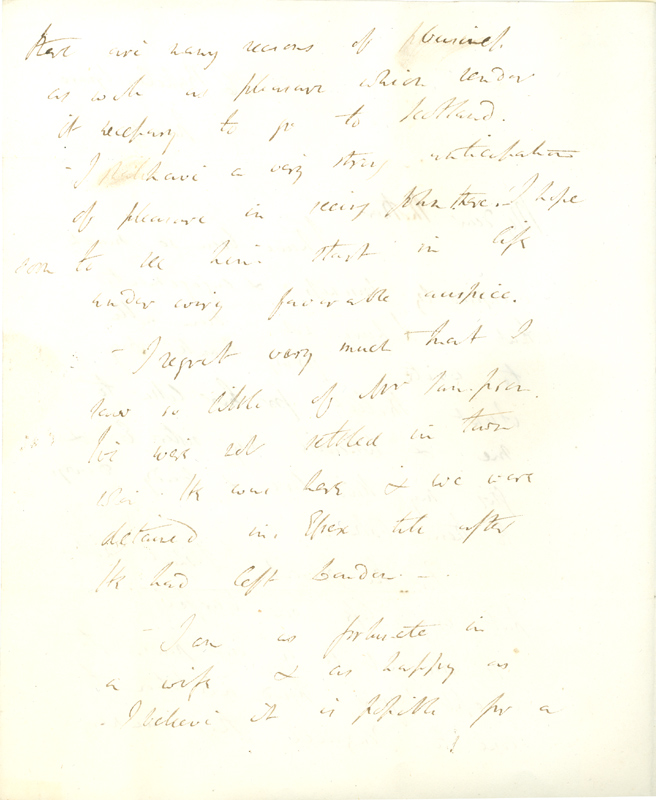 there are many reasons of business
as well as pleasure which render
it necessary to go to Scotland.
- I shall have a very strong anticipation
of pleasure in seeing John there. I hope
soon to see him start in life
under very favorable auspices.
- I regret very much that I
saw so little of Mr
We were not settled in town
when He was here & we were
detained in Essex till after
He had left London. -
- I am as fortunate in
a wife & as happy as
I believe it is possible for a